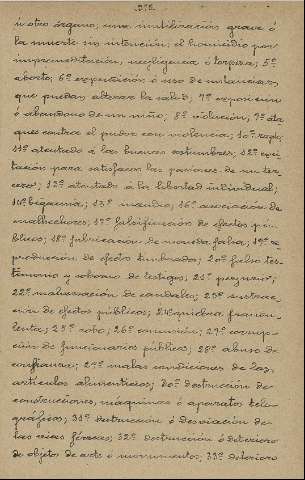 u otro órgano, una mutilación grave ó
la muerte sin intención; el homicidio por
impremeditación, negligencia ó torpeza; 5º
aborto; 6º expendición ó uso de sustancias
que puedan alterar la salud; 7º exposición
ó abandono de un niño; 8º violación; 9º ata
ques contra el pudor con violencia; 10º rapto;
11º atentado á las buenas costumbres; 12º exci
tación para satisfacer las pasiones de un ter-
cero; 13º atentado á la libertad individual;
14º bigamia; 15º 16º asociación de
malhechores; 17º falsificación de efectos pú-
blicos; 18º fabricación de moneda falsa; 19º re
producción de efecto timbrados; 20º falso tes-
timonio y soborno de testigos; 21º perjurio;
22º malversación de caudales; 23º sustrac-
ción de efectos públicos; 24º quiebra fraudu-
lenta; 25º robo; 26º concusión; 27º corrup-
ción de funcionarios públicos; 28º abuso de
confianza; 29º malas condiciones de los
artículos alimenticios; 30º destrucción de
construcciones, máquinas ó aparatos tele-
gráficos; 31º destrucción ó desviación de
las vias férreas; 32º destrucción ó deterioro
de objeto de arte ó monumentos; 33º deterioro